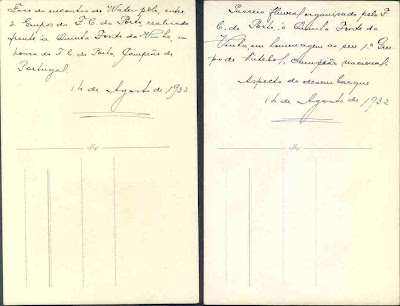 Fase do encontro de Water-polo, entre
2 Grupos do F. C. do Porto, realizado
frente á Quinta Fonte da Vinha, em
honra do F. C. do Porto, Campeão de
Portugal.
14 de Agosto de 1932
Passeio fluvial organizado pelo F.
C. do Porto, á Quinta Fonte da
Vinha, em homenagem ao seu 1º Gru-
po de Futebol, campeão nacional.
Aspecto do desembarque.
14 de Agosto de 1932